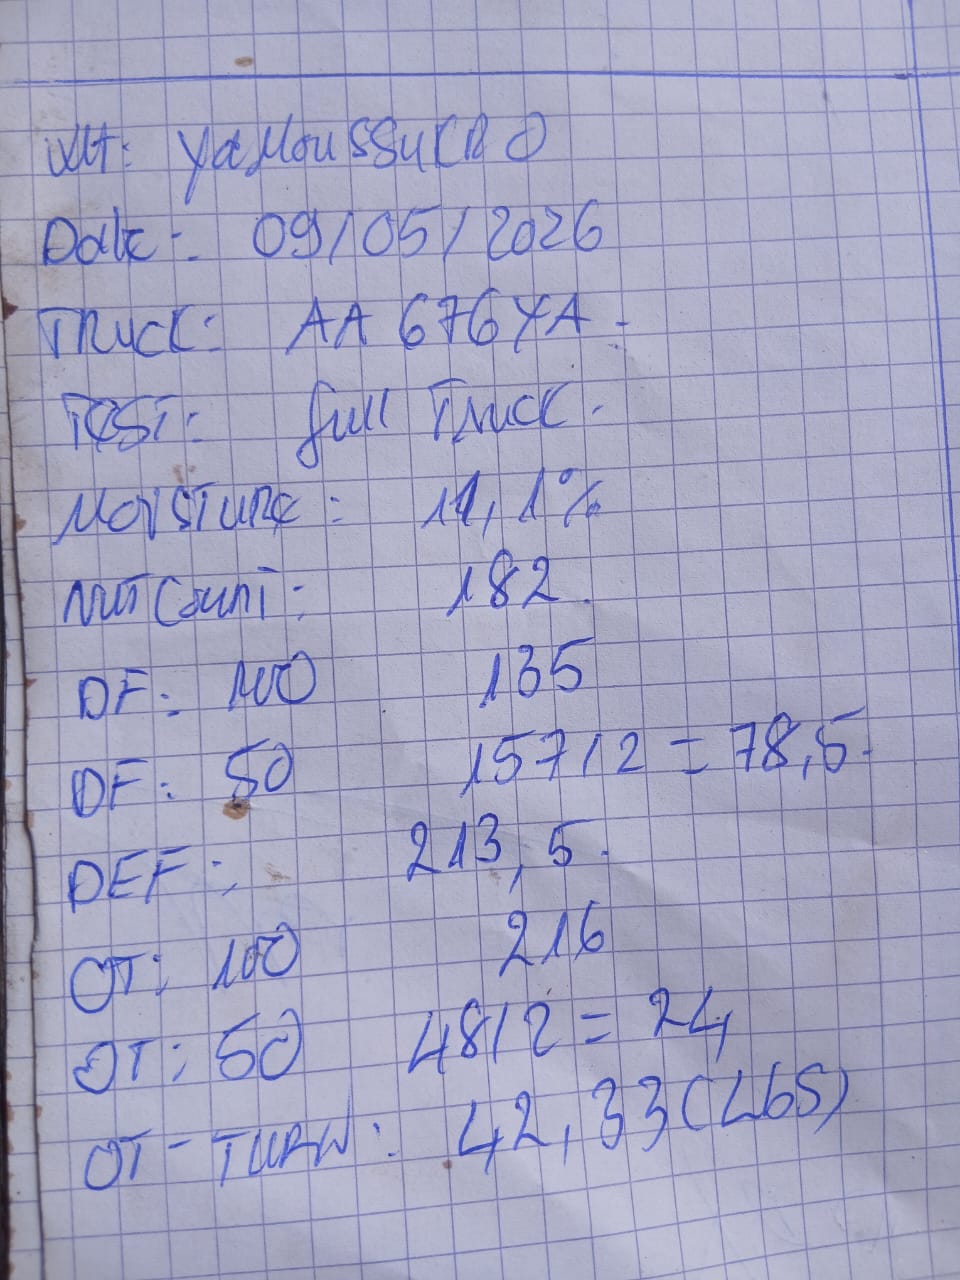 WH: YaMoussuCRO
Date: 09/05/2026
TRUCK: AA 676YA.
TEST: full TRUCK.
MOISTURE: 11,1%
NUTCOUNT: 182.
DF: 100 135
DF: 50 157/2 = 78,5.
DEF: 213,5.
OT: 100 216
OT: 50 48/2 = 24
OT-TURN: 42,33(LBS)